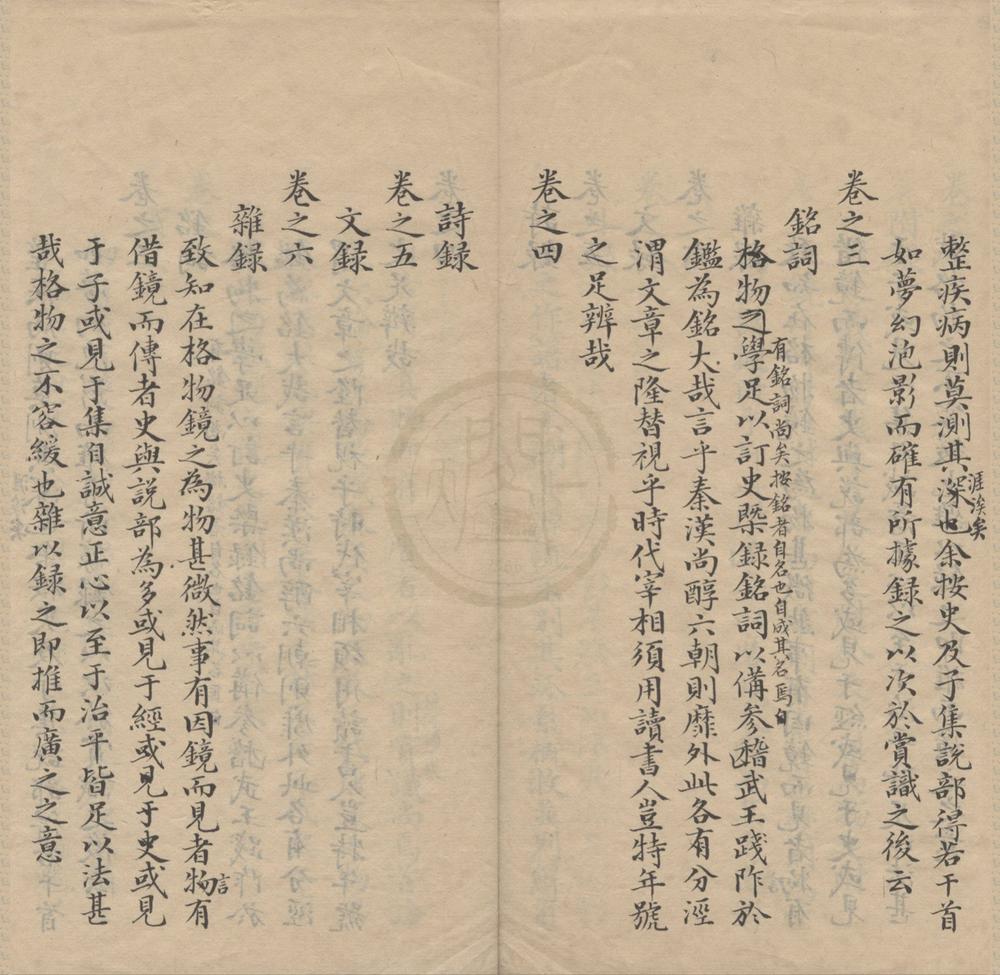 整疾病則莫測其深也余按史及子集說部得若干首
涯涘矣
如夢幻泡影而確有所據錄之以次於賞識之後云
卷之三
銘詞
有銘詞尚矣按銘者自名也自成其名焉自
格物之學足以訂史槩録銘詞以俻参稽武王踐阼於
鑑為銘大哉言乎秦漢尚醇六朝則靡外此各有分涇
渭文章之隆替視乎時代宰相須用讀書人豈特年號
之足辨哉
卷之四
詩録
卷之五
文録
卷之六
雜録
致知在格物鏡之為物甚微然事有因鏡而見者物有
言
借鏡而傳者史與説部為多或見于經或見于史或見
于子或見于集自誠意正心以至于治平皆足以法甚
哉格物之不容緩也雜以録之即推而廣之之意